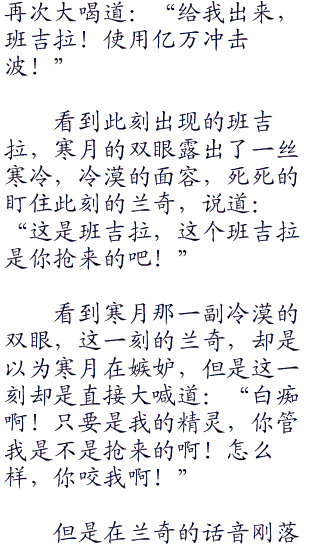 再次大喝道：“给我出来，
班吉拉！使用亿万冲击
波！”
看到此刻出现的班吉
拉，寒月的双眼露出了一丝
寒冷，冷漠的面容，死死的
盯住此刻的兰奇，说道：
“这是班吉拉，这个班吉拉
是你抢来的吧！”
看到寒月那一副冷漠的
双眼，这一刻的兰奇，却是
以为寒月在嫉妒，但是这一
刻却是直接大喊道：“白痴
啊！只要是我的精灵，你管
我是不是抢来的啊！怎么
样，你咬我啊！”
但是在兰奇的话音刚落